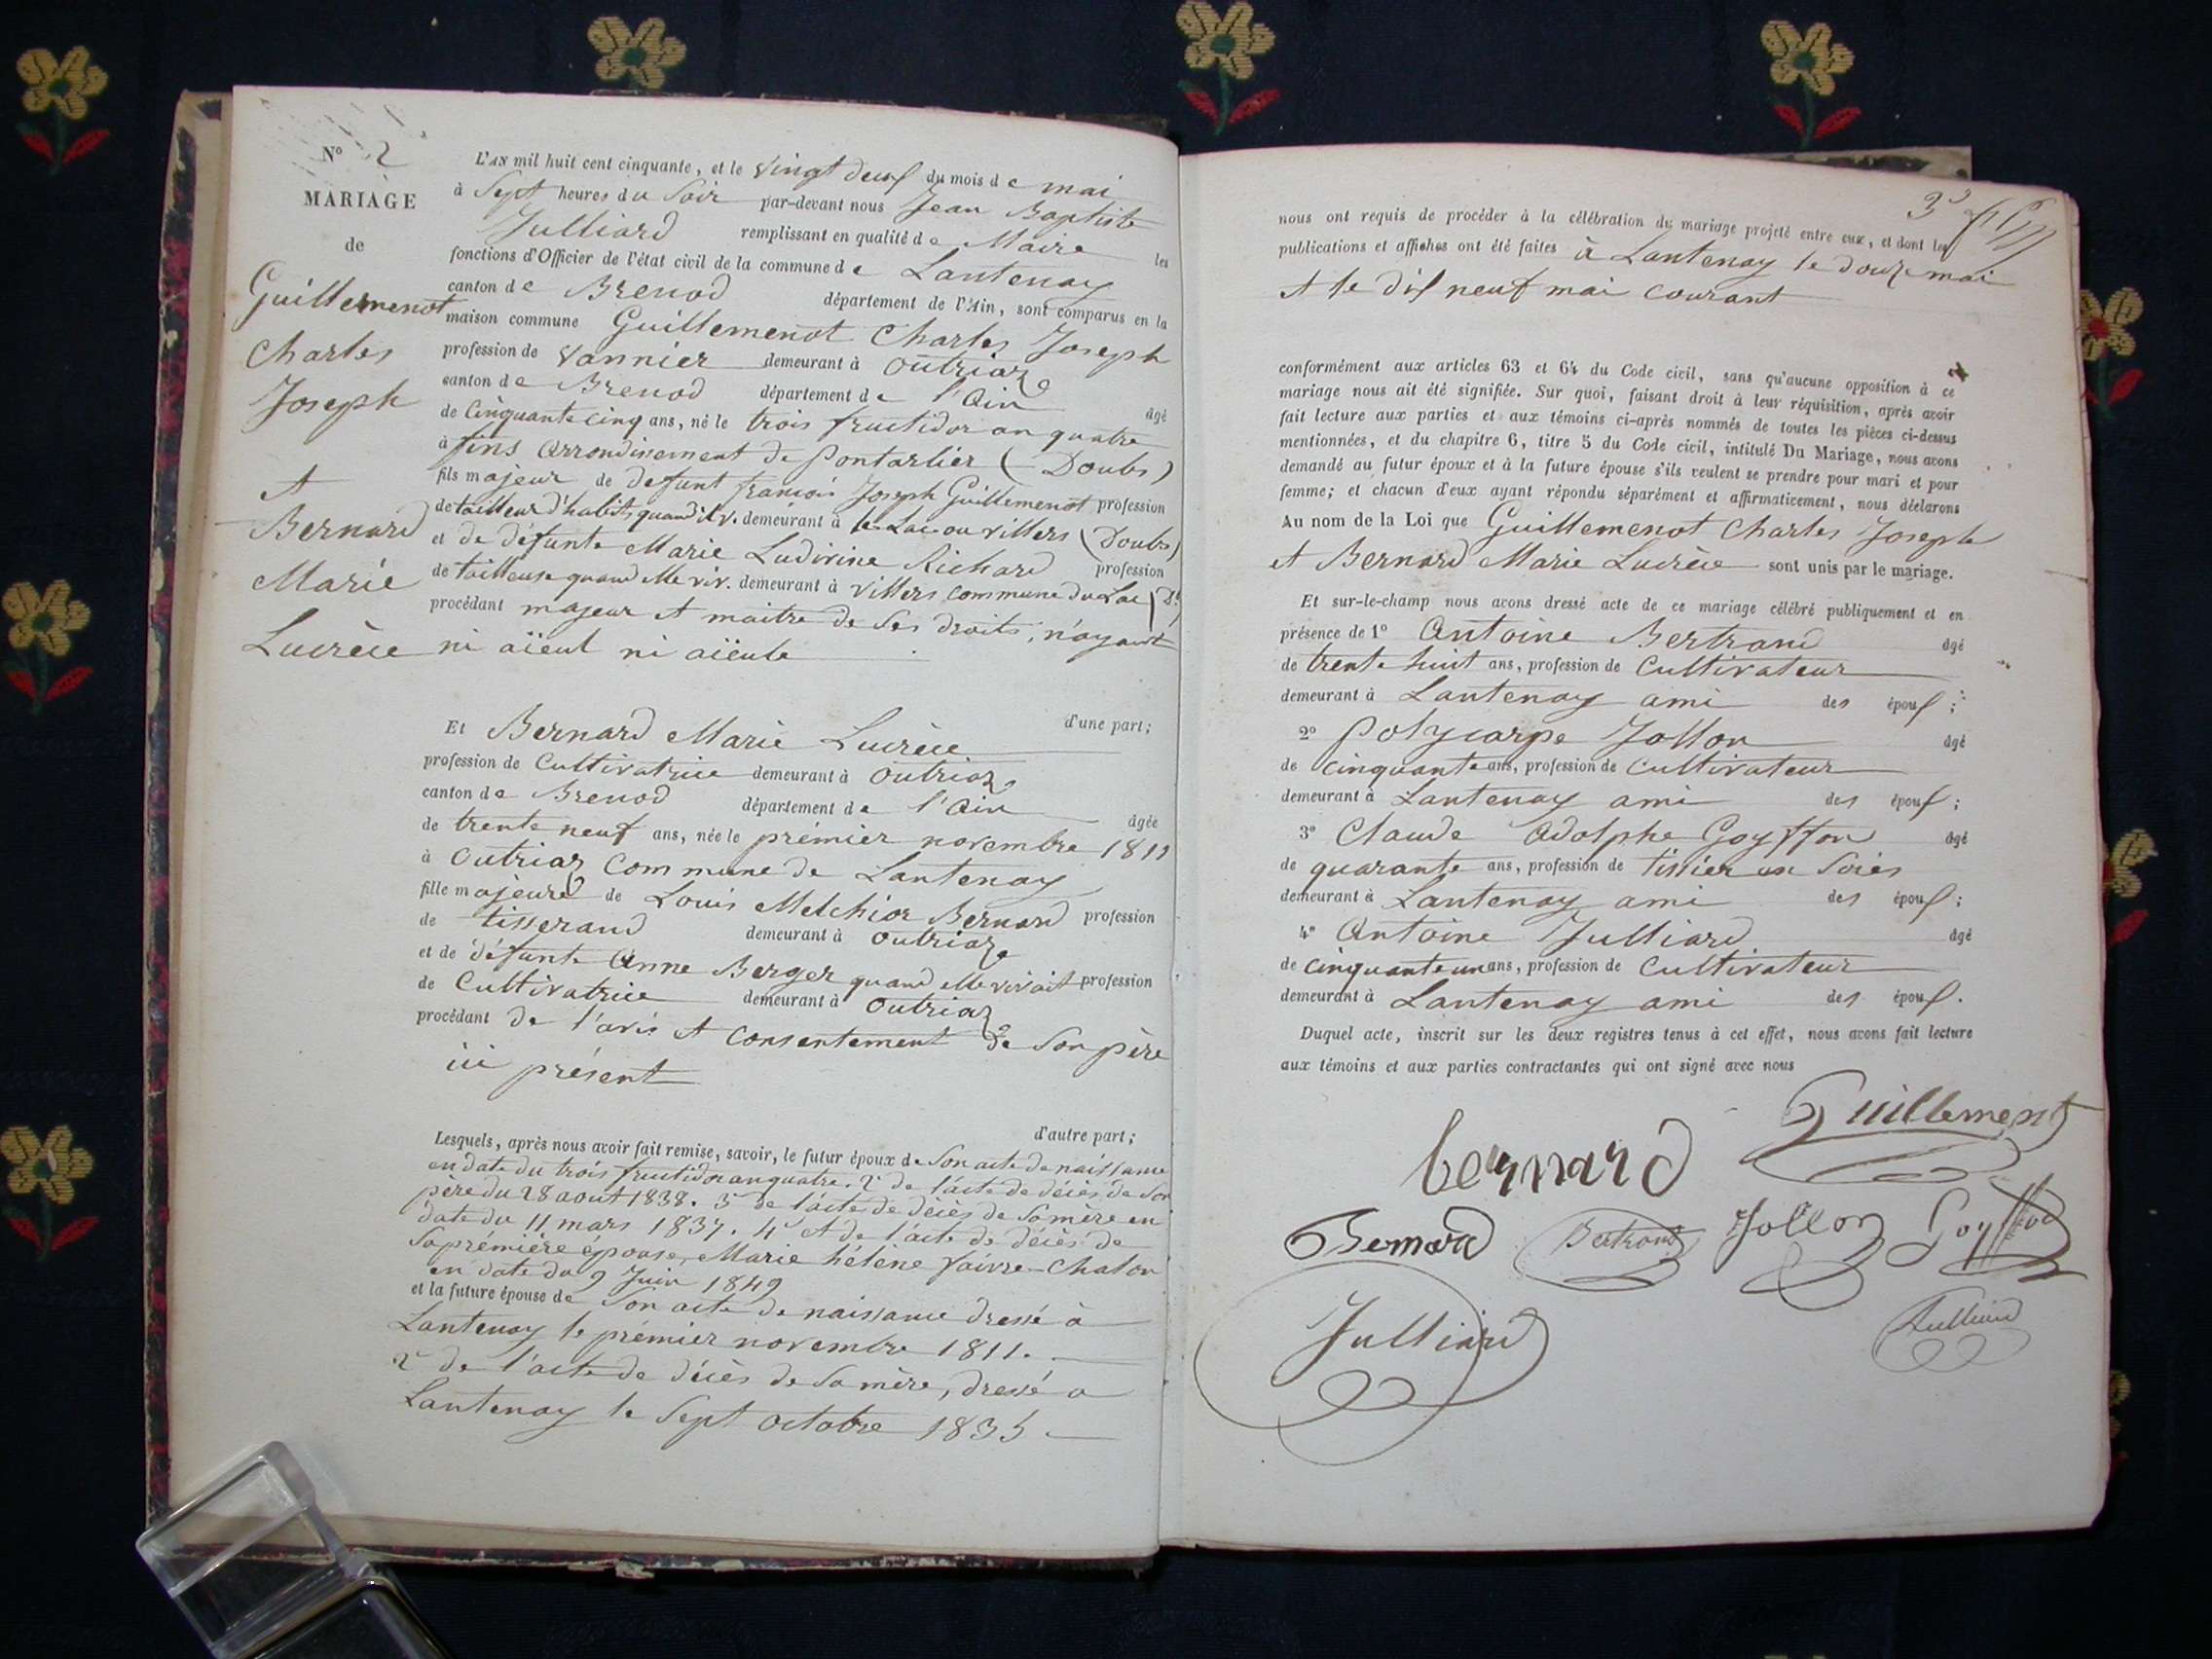 N° 2
MARIAGE
de
Guillemenot
Charles
Joseph
et
Bernard
Marie
Lucrèce
L'AN mil huit cent cinquante, et le vingt deux du mois de mai
à Sept heures du Soir par-devant nous Jean Baptiste
Julliard remplissant en qualité de Maire les
fonctions d'Officier de l'état civil de la commune de Lantenay
canton de Brenod département de l'Ain, sont comparus en la
maison commune Guillemenot Charles Joseph
profession de Vannier demeurant à Outriaz
canton de Brenod département de l'Ain âgé
de Cinquante cinq ans, né le trois fructidor an quatre
à fins arrondissement de Pontarlier (Doubs)
fils majeur de defunt francois Joseph Guillemenot profession
de tailleur d'habits quand il v. demeurant à le Lac ou villers (Doubs)
et de défunte Marie Ludivine Richard profession
de tailleuse quand elle viv. demeurant à Villers commune du Lac (D.)
procédant majeur et maitre de Ses droits, n'ayant
ni aïeul ni aïeule
d'une part;
Et Bernard Marie Lucrèce
profession de Cultivatrice demeurant à Outriaz
canton de Brenod département de l'Ain âgée
de trente neuf ans, née le prémier novembre 1811
à Outriaz Commune de Lantenay
fille majeure de Louis Melchior Bernard profession
de tisserand demeurant à Outriaz
et de défunte Anne Berger quand elle vivait profession
de Cultivatrice demeurant à Outriaz
procédant de l'avis et Consentement de Son père
ici présent
d'autre part;
Lesquels, après nous avoir fait remise, savoir, le futur époux de Son acte de naissance
en date du trois fructidor an quatre. 2° de l'acte de décès de Son
père du 28 aout 1838. 3° de l'acte de décès de Sa mère en
date du 11 mars 1837. 4° et de l'acte de décès de
Sa prémière épouse, Marie hélène faivre-Chalon
en date du 9 Juin 1849
et la future épouse de Son acte de naissance dressé à
Lantenay le prémier novembre 1811.
2° de l'acte de décès de Sa mère, dressé a
Lantenay le Sept octobre 1835
3
nous ont requis de procéder à la célébration du mariage projeté entre eux, et dont les
publications et affiches ont été faites à Lantenay le douze mai
et le dix neuf mai courant
conformément aux articles 63 et 64 du Code civil, sans qu'aucune opposition à ce
mariage nous ait été signifiée. Sur quoi, faisant droit à leur réquisition, après avoir
fait lecture aux parties et aux témoins ci-après nommés de toutes les pièces ci-dessus
mentionnées, et du chapitre 6, titre 5 du Code civil, intitulé Du Mariage, nous avons
demandé au futur époux et à la future épouse s'ils veulent se prendre pour mari et pour
femme; et chacun d'eux ayant répondu séparément et affirmativement, nous déclarons
Au nom de la Loi que Guillemenot Charles Joseph
et Bernard Marie Lucrèce sont unis par le mariage.
Et sur-le-champ nous avons dressé acte de ce mariage célébré publiquement et en
présence de 1° Antoine Bertrand âgé
de trente huit ans, profession de Cultivateur
demeurant à Lantenay ami des époux;
2° Polycarpe Jollon âgé
de cinquante ans, profession de Cultivateur
demeurant à Lantenay ami des époux;
3° Claude Adolphe Goyffon âgé
de quarante ans, profession de tissier en Soies
demeurant à Lantenay ami des époux;
4° Antoine Julliard âgé
de cinquante un ans, profession de Cultivateur
demeurant à Lantenay ami des époux.
Duquel acte, inscrit sur les deux registres tenus à cet effet, nous avons fait lecture
aux témoins et aux parties contractantes qui ont signé avec nous
Guillemenot
bernard
Bernard Bertrand Jollon Goyffon
Julliard Julliard